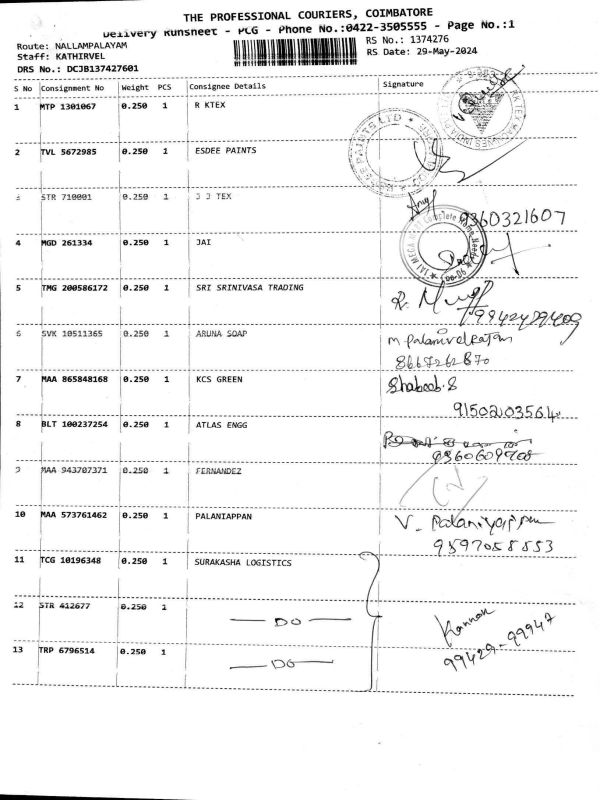 THE PROFESSIONAL COURIERS, COIMBATORE
Delivery Runsheet - PCG - Phone No.:0422-3505555 - Page No.:1
Route: NALLAMPALAYAM
RS No.: 1374276
Staff: KATHIRVEL
RS Date: 29-May-2024
DRS No.: DCJB137427601
S No Consignment No Weight PCS Consignee Details Signature
1 MTP 1301067 0.250 1 R KTEX
2 TVL 5672985 0.250 1 ESDEE PAINTS
PAINTS LTD
3 STR 710001 0.250 1 J J TEX
9360321607
4 MGD 261334 0.250 1 JAI
JAI MEGA Complete Home Needs
5 TMG 200586172 0.250 1 SRI SRINIVASA TRADING
6 SVK 10511365 0.250 1 ARUNA SOAP
8667262870
7 MAA 865848168 0.250 1 KCS GREEN Shabeeb.S
9150203564
8 BLT 100237254 0.250 1 ATLAS ENGG
9 MAA 943707371 0.250 1 FERNANDEZ
10 MAA 573761462 0.250 1 PALANIAPPAN V. Palaniyappan
9597058553
11 TCG 10196348 0.250 1 SURAKASHA LOGISTICS
12 STR 412677 0.250 1 — DO — Kannan
99429-99947
13 TRP 6796514 0.250 1 — DO —